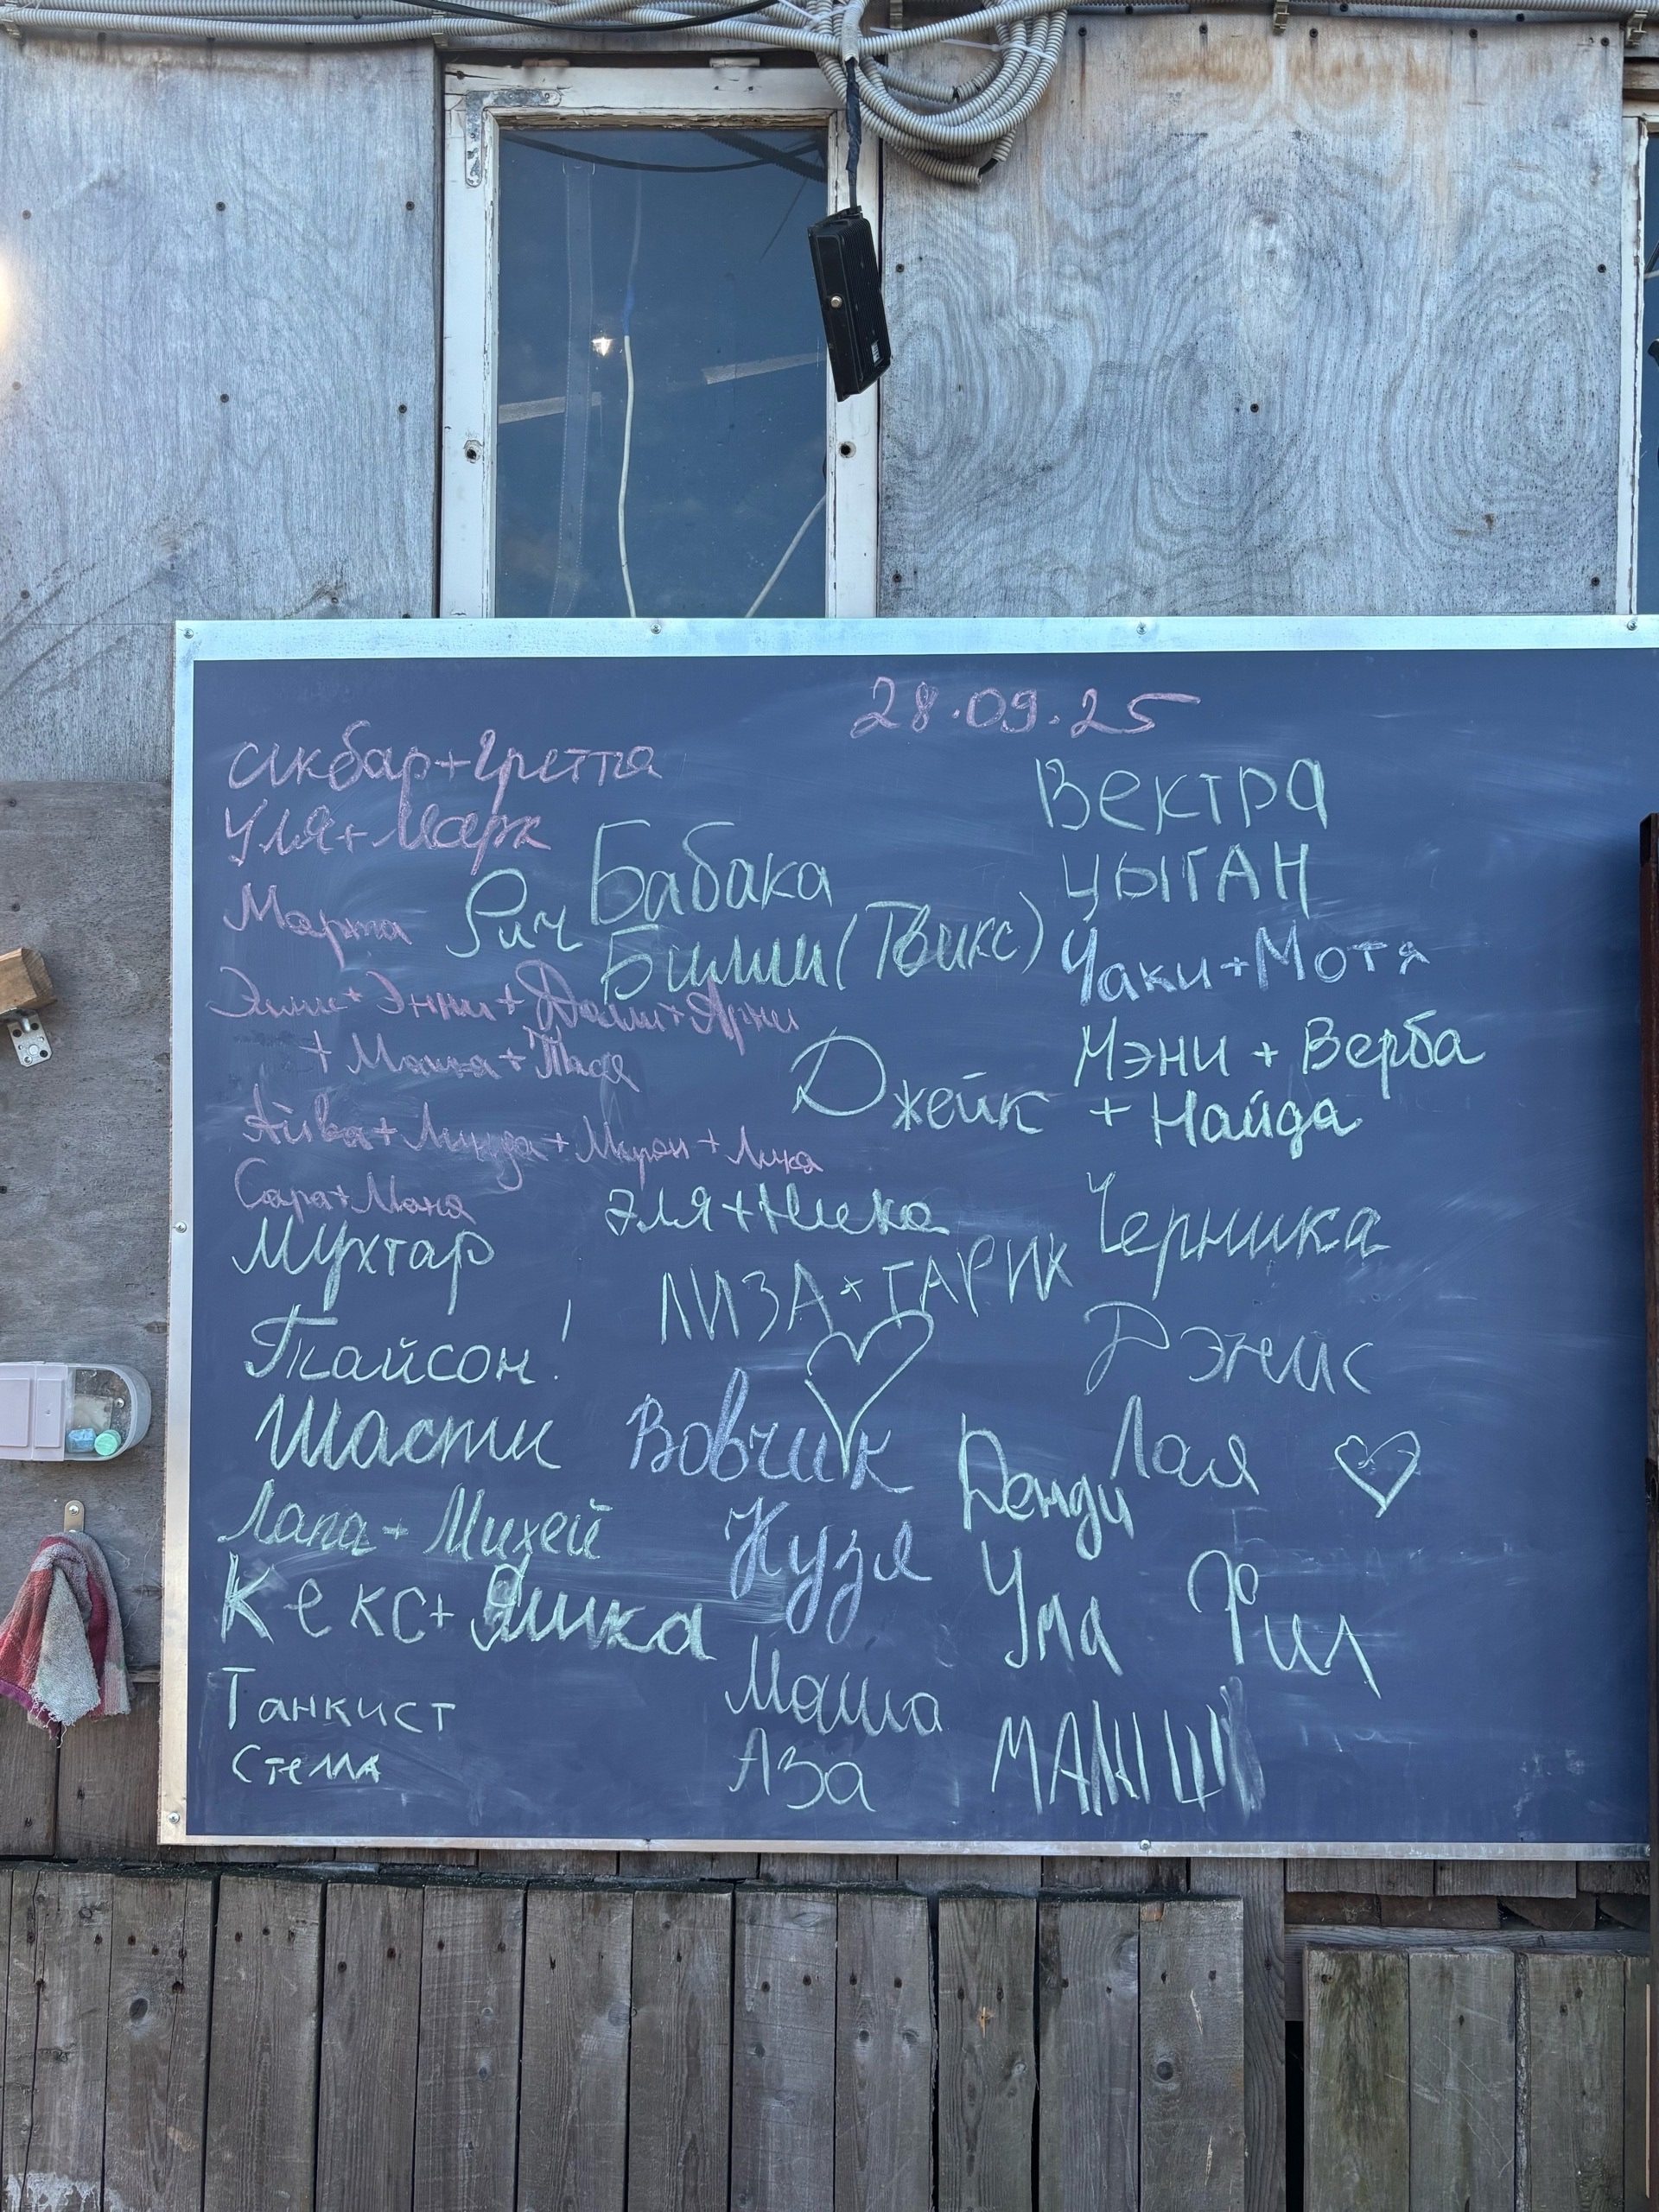 28.09.25
Акбар+Гретта
Уля+Марк
Марта
Рич
Бабака
Билли (Твикс)
Элли+Энни+Долли+Ярни
+ Машка+Тася
Айва+Линда+Мирон+Лика
Сара+Маня
Мухтар
Тайсон!
Шасти
Лапа+Михей
Кекс+Яшка
Танкист
Стелла
Джейк
Эля+Ника
ЛИЗА+ГАРИК
Вовчик
Кузя
Маша
Аза
Вектра
ЦЫГАН
Чаки+Мотя
Мэни+Верба
+ Найда
Черника
Рэмис
Лая
Денди
Ума
Фил